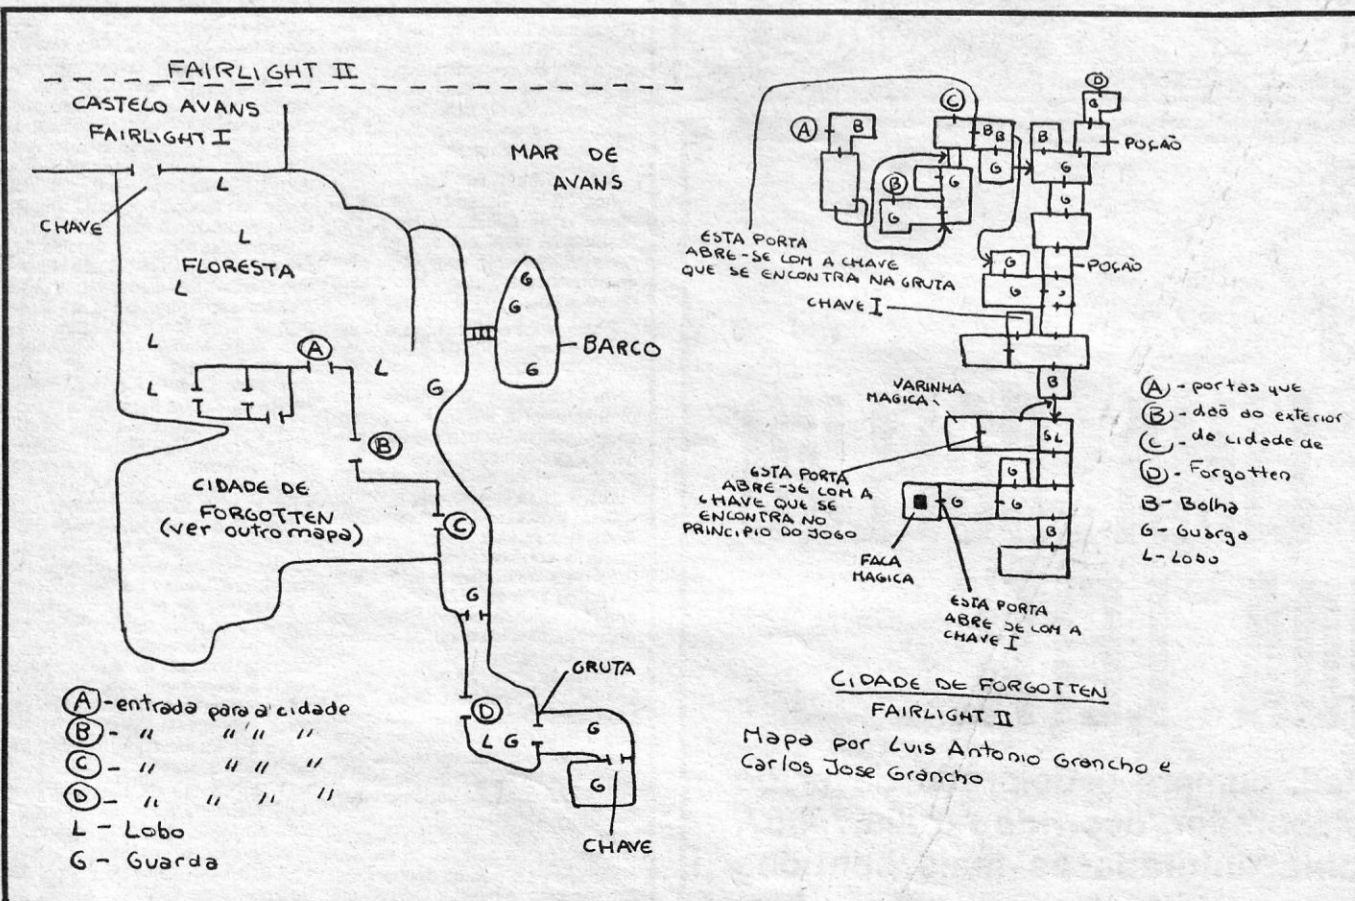 FAIRLIGHT II
CASTELO AVANS
FAIRLIGHT I
L
CHAVE
L
FLORESTA
L
L
L
A
L
G
B
CIDADE DE
FORGOTTEN
(ver outro mapa)
C
G
MAR DE
AVANS
G
G
G
BARCO
GRUTA
D
L G
G
G
CHAVE
A - entrada para a cidade
B - " " " "
C - " " " "
D - " " " "
L - Lobo
G - Guarda
D
G
C
A
B
B
B
B
POÇÃO
G
G
G
B
G
G
ESTA PORTA
ABRE-SE COM A CHAVE
QUE SE ENCONTRA NA GRUTA
G
POÇÃO
G
CHAVE I
B
VARINHA
MAGICA
SL
ESTA PORTA
ABRE-SE COM A
CHAVE QUE SE
ENCONTRA NO
PRINCIPIO DO JOGO
G
G
G
B
FACA
MAGICA
ESTA PORTA
ABRE SE COM A
CHAVE I
A - portas que
B - dão ao exterior
C - da cidade de
D - Forgotten
B - Bolha
G - Guarga
L - Lobo
CIDADE DE FORGOTTEN
FAIRLIGHT II
Mapa por Luis Antonio Grancho e
Carlos Jose Grancho